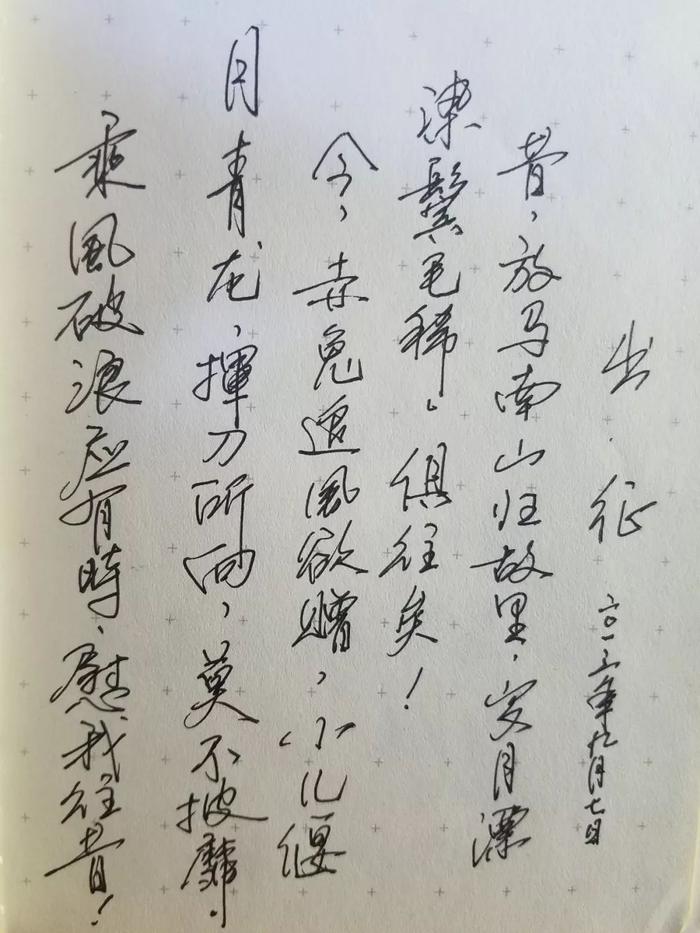 出·征 二〇一三年九月七日
昔，放马南山归故里，岁月漂
染鬓毛稀。俱往矣！
今，赤兔追風欲贈，小儿偃
月青龙，揮刀所向，莫不披靡。
乘風破浪应有時，慰我往昔！